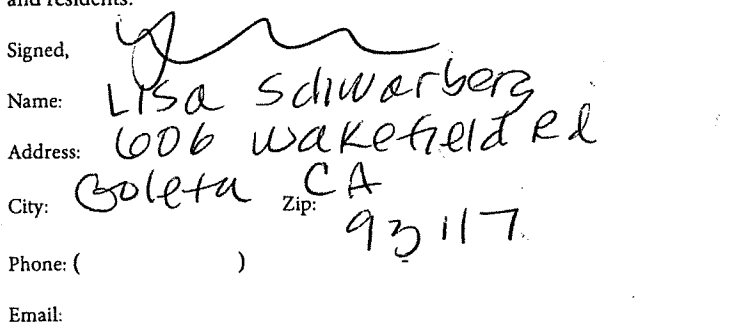 and residents.
Signed,
Name: Lisa Schwarberg
Address: 606 Wakefield Rd
City: Goleta Zip: CA
93117
Phone: ( )
Email: